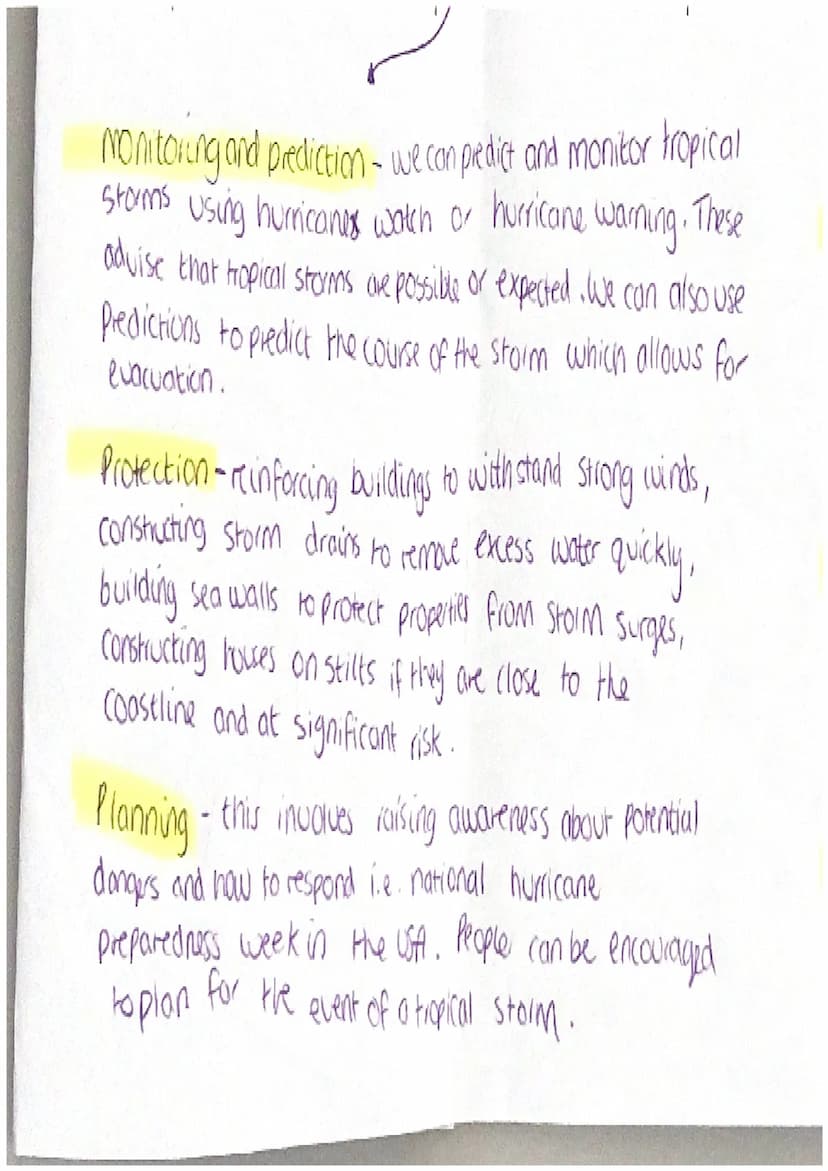 Monitoring and prediction - we can predict and monitor tropical
storms using hurricanes watch or hurricane warning. These
advise that tropical storms are possible or expected. We can also use
predictions to predict the course of the storm which allows for
evacuation.
Protection - reinforcing buildings to withstand strong winds,
constructing storm drains to remove excess water quickly,
building sea walls to protect properties from storm surges,
constructing houses on stilts if they are close to the
coastline and at significant risk.
Planning - this involves raising awareness about potential
dangers and how to respond i.e. national hurricane
preparedness week in the USA. People can be encouraged
to plan for the event of a tropical storm.